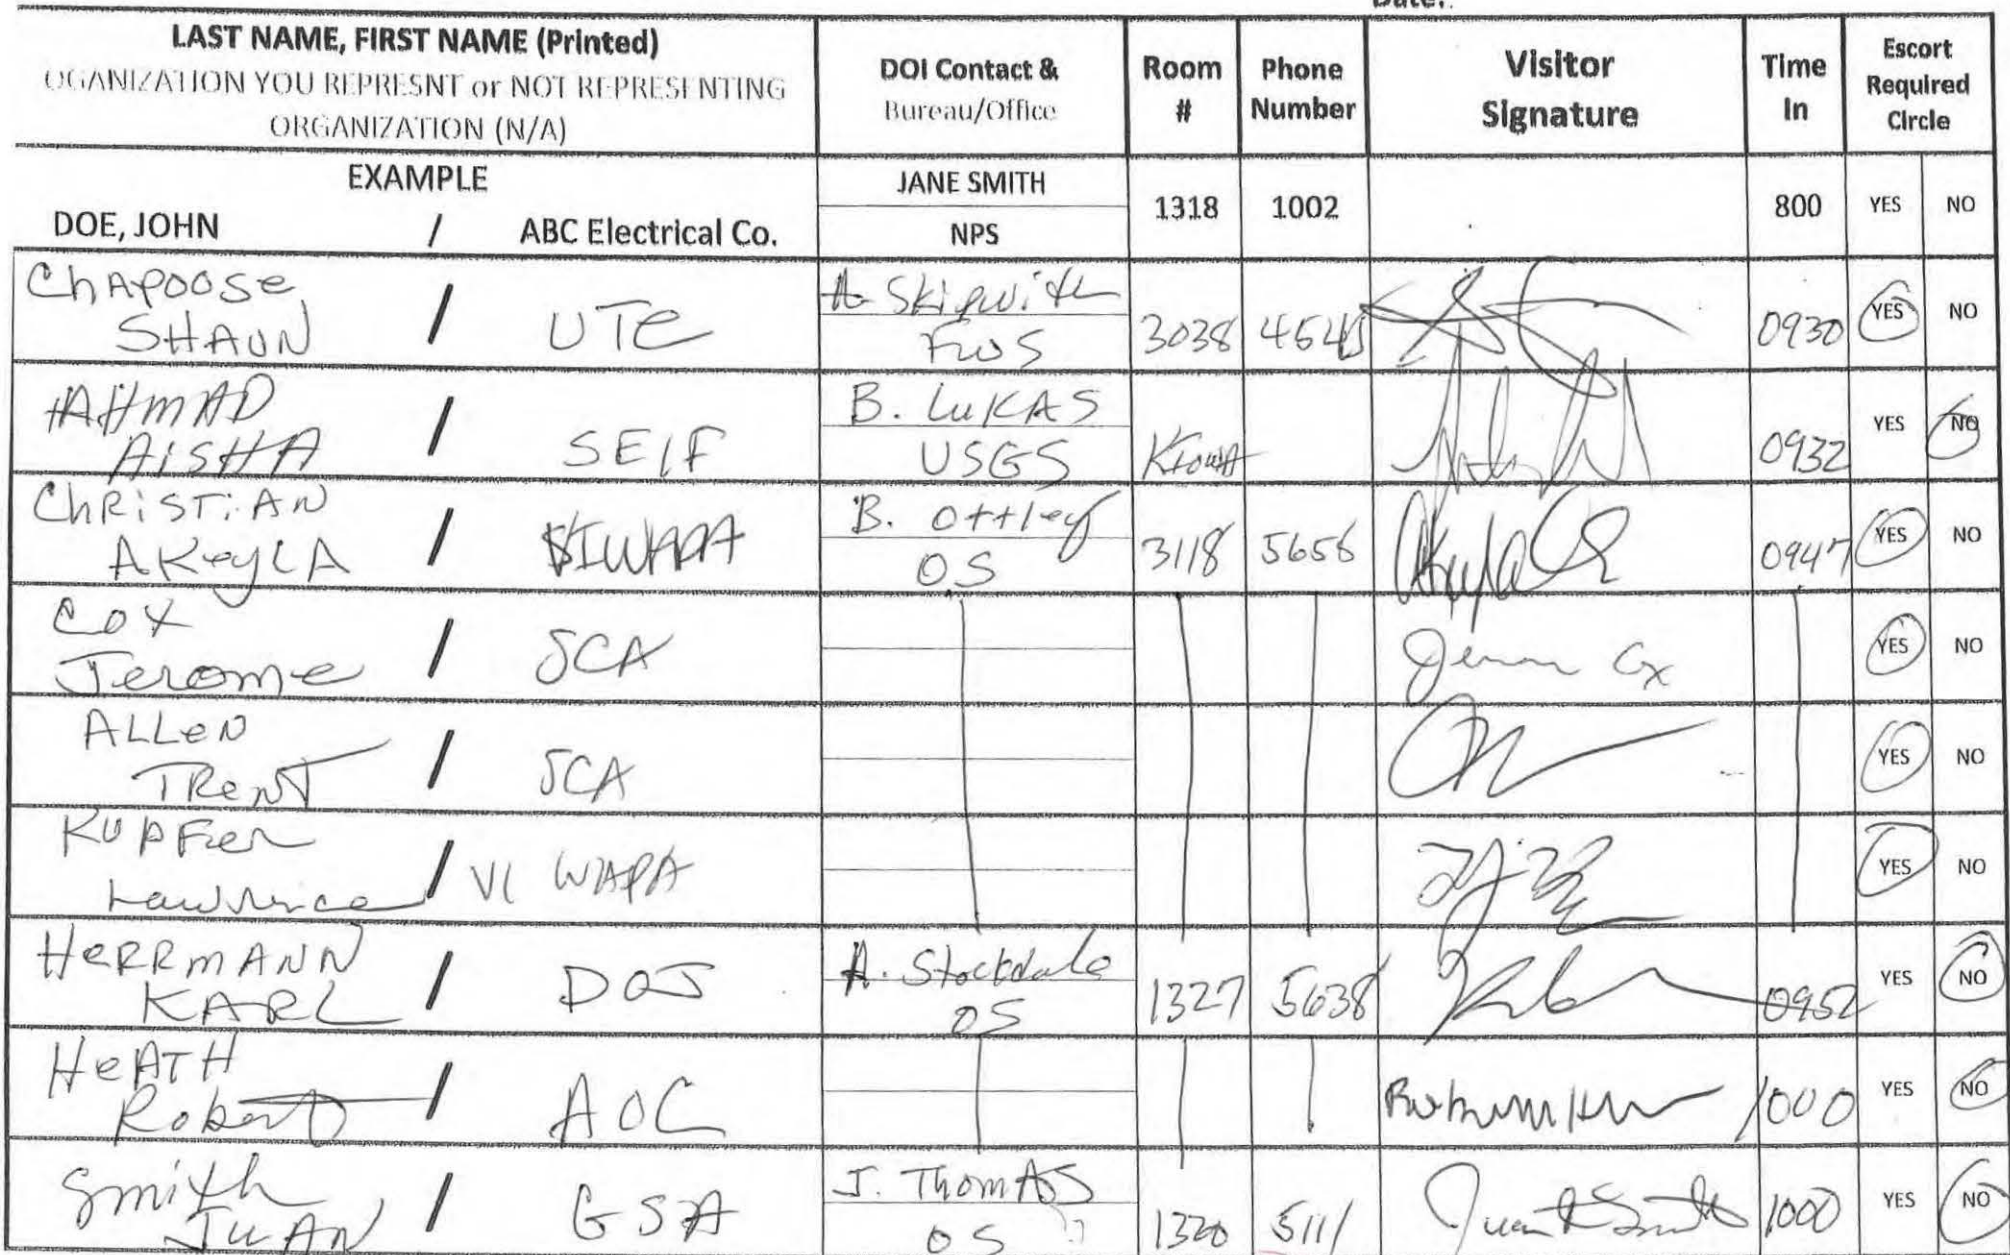 Date:
LAST NAME, FIRST NAME (Printed)
OGANIZATION YOU REPRESNT or NOT REPRESENTING
ORGANIZATION (N/A)
DOI Contact &
Bureau/Office
Room
#
Phone
Number
Visitor
Signature
Time
In
Escort
Required
Circle
EXAMPLE
DOE, JOHN / ABC Electrical Co.
JANE SMITH
NPS
1318 1002 800 YES NO
ChAPOOSE,
SHAUN / UTE
A Skipwith
FWS
3038 0930 YES NO
AHMAD
AISHA / SELF
B. LUKAS
USGS
0932 YES NO
ChRISTIAN
AKeyLA /
B. Ottley
OS
3118 5656 0947 YES NO
COX
Jerome / SCA
Jerom Cox
YES NO
ALLEN
TRENT / SCA
YES NO
KUPFER
Lawrence / VI WAPA
YES NO
HERRMANN
KARL / DOJ
A. Stockdale
OS
1327 5638 0952 YES NO
HEATH
Robert / AOC
1000 YES NO
Smith
JUAN / GSA
J. ThomAS
OS
1320 5111 Juan Smith 1000 YES NO